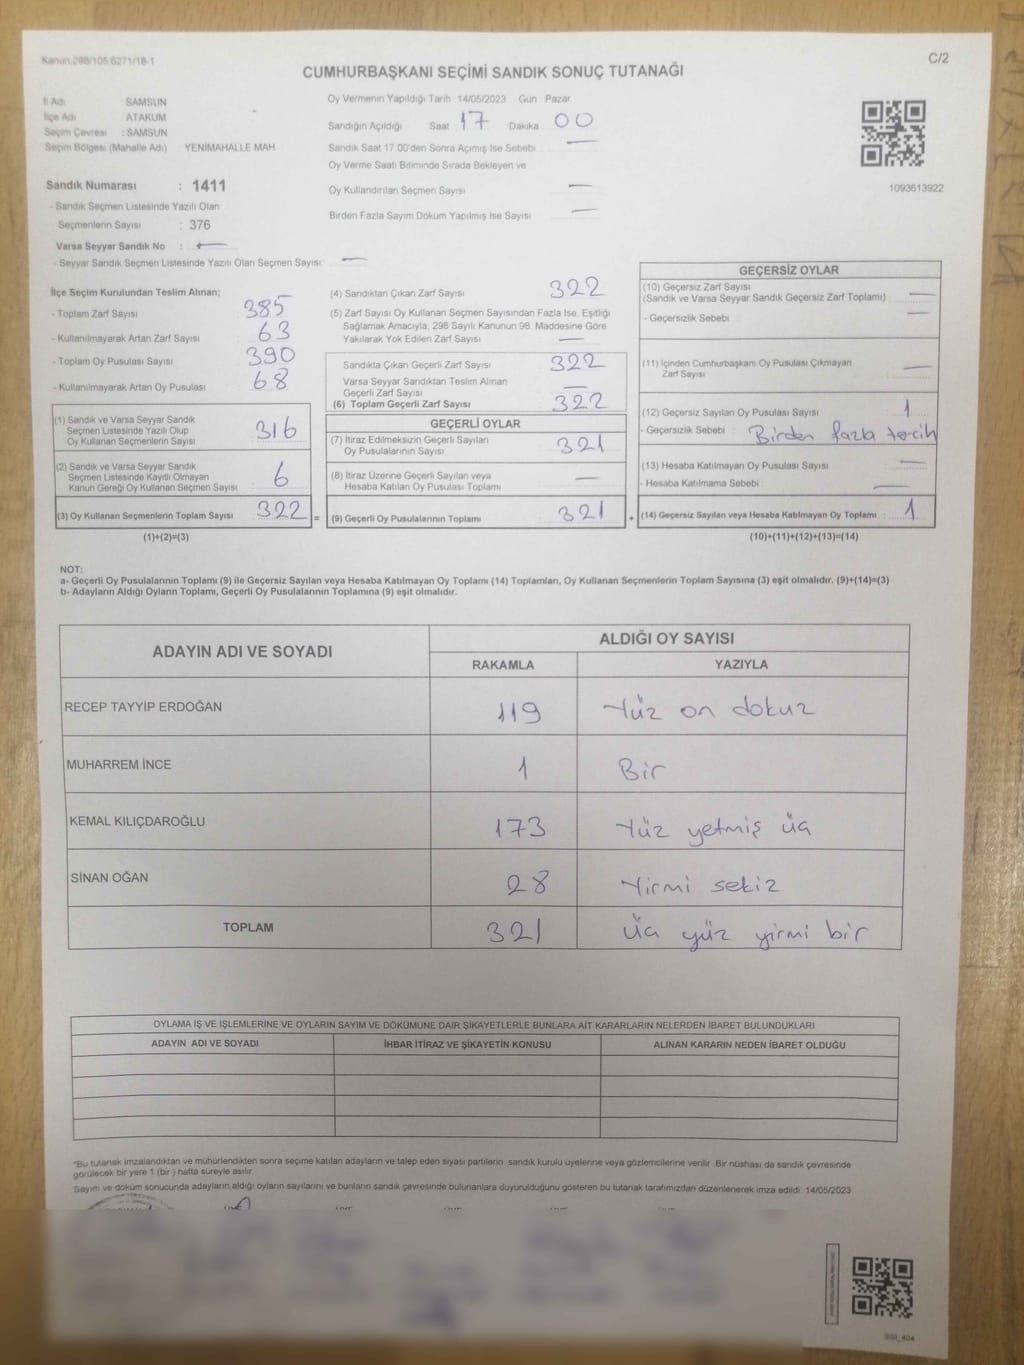 Kanun.298/105.6271/18-1
C/2
CUMHURBAŞKANI SEÇİMİ SANDIK SONUÇ TUTANAĞI
İl Adı SAMSUN
İlçe Adı ATAKUM
Seçim Çevresi : SAMSUN
Seçim Bölgesi (Mahalle Adı) YENİMAHALLE MAH.
Oy Vermenin Yapıldığı Tarih 14/05/2023 Gün Pazar
Sandığın Açıldığı Saat 17 Dakika 00
Sandık Saat 17:00'den Sonra Açımış İse Sebebi —
Oy Verme Saati Bitiminde Sırada Bekleyen ve
Oy Kullandırılan Seçmen Sayısı —
Birden Fazla Sayım Döküm Yapılmış İse Sayısı —
1093613922
Sandık Numarası : 1411
- Sandık Seçmen Listesinde Yazılı Olan
Seçmenlerin Sayısı : 376
Varsa Seyyar Sandık No : —
- Seyyar Sandık Seçmen Listesinde Yazılı Olan Seçmen Sayısı: —
İlçe Seçim Kurulundan Teslim Alınan;
- Toplam Zarf Sayısı : 385
- Kullanılmayarak Artan Zarf Sayısı : 63
- Toplam Oy Pusulası Sayısı : 390
- Kullanılmayarak Artan Oy Pusulası : 68
(1) Sandık ve Varsa Seyyar Sandık
Seçmen Listesinde Yazılı Olup
Oy Kullanan Seçmenlerin Sayısı 316
(2) Sandık ve Varsa Seyyar Sandık
Seçmen Listesinde Kayıtlı Olmayan
Kanun Gereği Oy Kullanan Seçmen Sayısı 6
(3) Oy Kullanan Seçmenlerin Toplam Sayısı 322 =
(1)+(2)=(3)
(4) Sandıktan Çıkan Zarf Sayısı 322
(5) Zarf Sayısı Oy Kullanan Seçmen Sayısından Fazla İse, Eşitliği
Sağlamak Amacıyla, 298 Sayılı Kanunun 98. Maddesine Göre
Yakılarak Yok Edilen Zarf Sayısı —
Sandıkta Çıkan Geçerli Zarf Sayısı 322
Varsa Seyyar Sandıktan Teslim Alınan
Geçerli Zarf Sayısı —
(6) Toplam Geçerli Zarf Sayısı 322
GEÇERLİ OYLAR
(7) İtiraz Edilmeksizin Geçerli Sayılan
Oy Pusulalarının Sayısı 321
(8) İtiraz Üzerine Geçerli Sayılan veya
Hesaba Katılan Oy Pusulası Toplamı —
(9) Geçerli Oy Pusulalarının Toplamı 321 +
GEÇERSİZ OYLAR
(10) Geçersiz Zarf Sayısı
(Sandık ve Varsa Seyyar Sandık Geçersiz Zarf Toplamı) : —
- Geçersizlik Sebebi : —
(11) İçinden Cumhurbaşkanı Oy Pusulası Çıkmayan
Zarf Sayısı —
(12) Geçersiz Sayılan Oy Pusulası Sayısı 1
- Geçersizlik Sebebi : Birden fazla tercih
(13) Hesaba Katılmayan Oy Pusulası Sayısı —
- Hesaba Katılmama Sebebi : —
(14) Geçersiz Sayılan veya Hesaba Katılmayan Oy Toplamı : 1
(10)+(11)+(12)+(13)=(14)
NOT:
a- Geçerli Oy Pusulalarının Toplamı (9) ile Geçersiz Sayılan veya Hesaba Katılmayan Oy Toplamı (14) Toplamları, Oy Kullanan Seçmenlerin Toplam Sayısına (3) eşit olmalıdır. (9)+(14)=(3)
b- Adayların Aldığı Oyların Toplamı, Geçerli Oy Pusulalarının Toplamına (9) eşit olmalıdır.
ADAYIN ADI VE SOYADI ALDIĞI OY SAYISI
RAKAMLA YAZIYLA
RECEP TAYYİP ERDOĞAN 119 Yüz on dokuz
MUHARREM İNCE 1 Bir
KEMAL KILIÇDAROĞLU 173 Yüz yetmiş üç
SİNAN OĞAN 28 Yirmi sekiz
TOPLAM 321 Üç yüz yirmi bir
OYLAMA İŞ VE İŞLEMLERİNE VE OYLARIN SAYIM VE DÖKÜMÜNE DAİR ŞİKAYETLERLE BUNLARA AİT KARARLARIN NELERDEN İBARET BULUNDUKLARI
ADAYIN ADI VE SOYADI İHBAR İTİRAZ VE ŞİKAYETİN KONUSU ALINAN KARARIN NEDEN İBARET OLDUĞU
*Bu tutanak imzalandıktan ve mühürlendikten sonra seçime katılan adayların ve talep eden siyasi partilerin sandık kurulu üyelerine veya gözlemcilerine verilir. Bir nüshası da sandık çevresinde
görülecek bir yere 1 (bir ) hafta süreyle asılır.
Sayım ve döküm sonucunda adayların aldığı oyların sayılarını ve bunların sandık çevresinde bulunanlara duyurulduğunu gösteren bu tutanak tarafımızdan düzenlenerek imza edildi. 14/05/2023